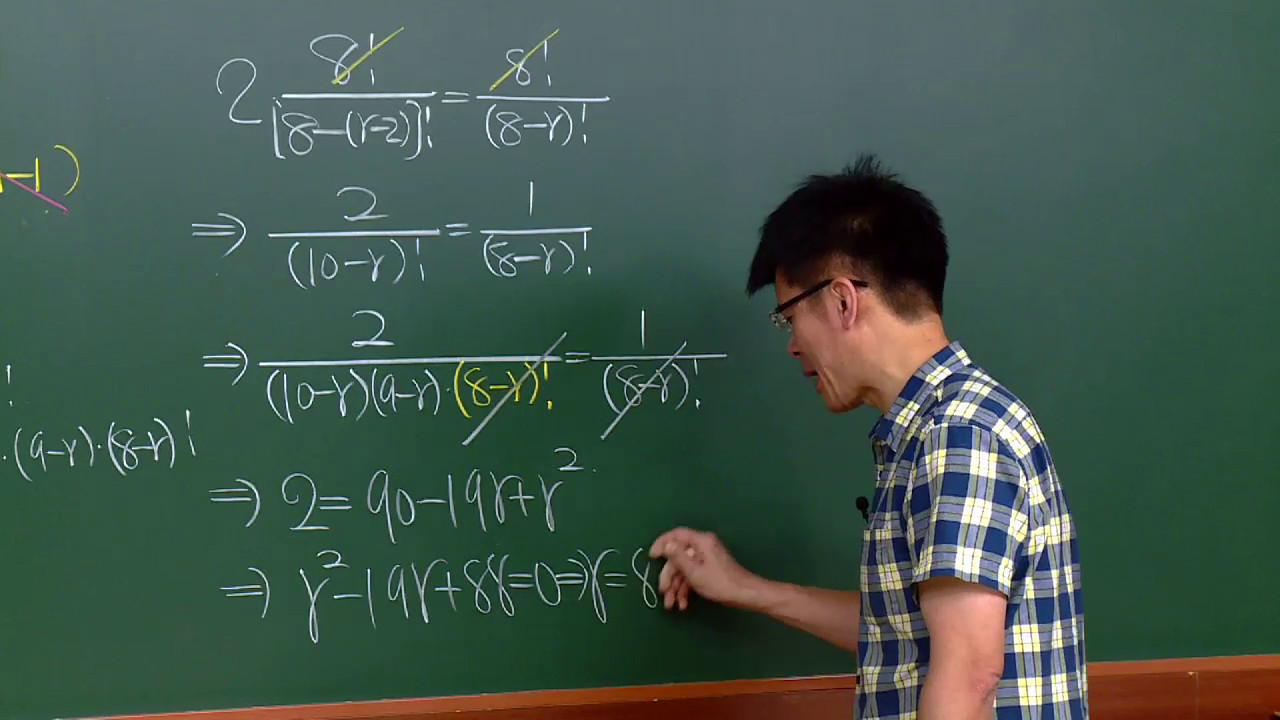 2 8!/[8-(r-2)]! = 8!/(8-r)!
-1)
⇒ 2/(10-r)! = 1/(8-r)!
⇒ 2/(10-r)(9-r)·(8-r)! = 1/(8-r)!
!
·(9-r)·(8-r)!
⇒ 2=90-19r+r²
⇒ r²-19r+88=0⇒r=8